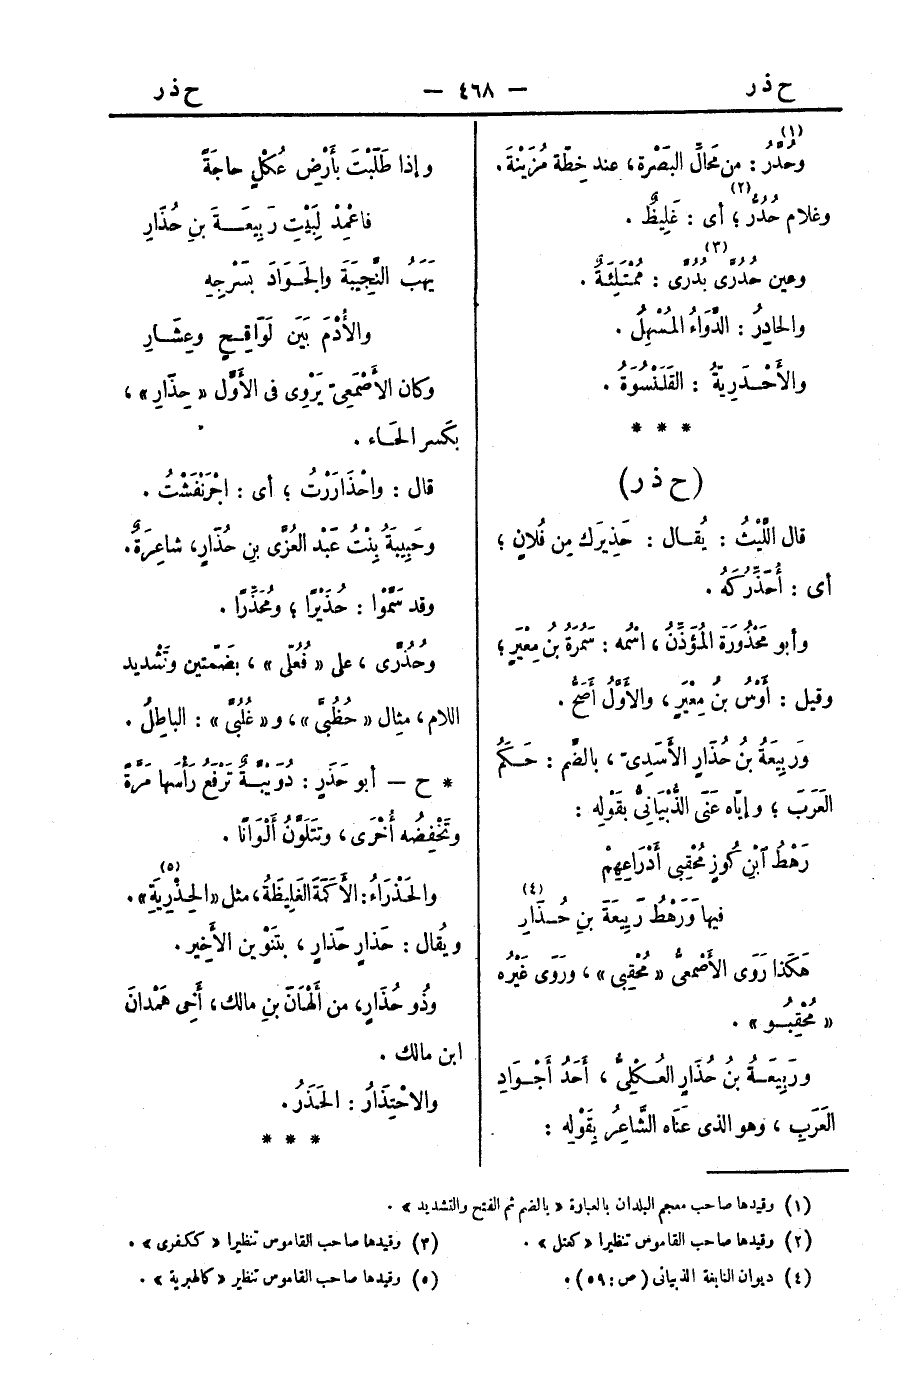 ح ذر — ٤٦٨ — ح ذر
وحُدَّرُ (١) : من مَحَالِّ البَصْرة، عند خِطّة مُزَيْنَة.
وغلام حُدُرٌّ (٢) ؛ أى : غَلِيظٌ .
وعين حُدُرَّى بُدُرَّى (٣) : مُمْتَلِئَةٌ .
والحادِرُ : الدَّوَاءُ المُسْهِلُ .
والأَحْدَرِيّةُ : القَلَنْسُوَةُ .
* * *
(ح ذر)
قال اللَّيْثُ : يُقال : حَذِيرَك مِن فُلانٍ ؛
أى : أُحَذِّرُكَهُ .
وأبو مَحْذُورَة المُؤَذِّنُ ، اسْمُه : سَمُرَةُ بن مِعْيَرٍ ؛
وقيل : أَوْسُ بنُ مِعْيَرٍ ، والأَوَّلُ أَصَحُّ .
ورَبِيعَةُ بنُ حُذَارٍ الأَسَدِىّ ، بالضّم : حَكَمُ
العَرَب ؛ وإيّاه عَنَى الذُّبْيَانِىُّ بقَوْلِه :
رَهْطُ ٱبْنِ كُوزٍ مُحْقِبِى أَدْرَاعِهِمْ
فيها وَرَهْطُ رَبِيعَةَ بنِ حُـذَارِ (٤)
هَكَذا رَوَى الأَصْمعىُّ « مُحْقِبِى » ، ورَوَى غَيْرُه
« مُحْقِبُو » .
ورَبِيعَـةُ بنُ حُذَارٍ العُـكْلِىُّ ، أَحَدُ أَجْوَادِ
العَرَبِ ، وهو الذى عَنَاه الشَّاعِرُ بقَوْلِه :
وإذا طَلَبْتَ بأَرْضِ عُكْلٍ حاجَةً
فاعْمِدْ لِبَيْتِ رَبِيعَـةَ بنِ حُذَارِ
يَهَبُ النَّجِيبَةَ والجَوَادَ بسَرْجِهِ
والأُدْمَ بَيْنَ لَوَاقِحٍ وعِشَارِ
وكان الأَصْمَعِىّ يَرْوِى فى الأَوَّل « حِذَارِ » ،
بكَسر الحَاء .
قال : واحْذَارَرْتُ ؛ أى : اجْرَنْفَشْتُ .
وحَبِيبَةُ بِنْتُ عَبْد العُزَّى بنِ حُذَارٍ، شاعِرَةٌ.
وقد سَمَّوْا : حُذَيْرًا ؛ ومُحَذِّرًا .
وحُذُرَّى ، على « فُعُلَّى » ، بضَمّتين وتَشْديد
اللام، مِثال « حُظُبَّى »، و « غُلُبَّى » : الباطِلُ .
* ح — أبو حَذَرٍ : دُوَيْبَّةٌ تَرْفَعُ رَأْسَها مَرَّةً
وتَخْفِضُه أُخْرَى ، وتَتَلَوَّنُ أَلْوَانًا .
والحَذْرَاءُ : الأَكَمَةُ الغَلِيظَةُ ، مثل « الحِذْرِيَةِ (٥) ».
ويُقال : حَذارِ حَذارٍ ، بتَنْوِين الأَخِير .
وذُو حُذَارٍ، من أَلْهَانَ بنِ مالك، أَخِى هَمْدانَ
ابن مالك .
والاحْتِذَارُ : الحَذَرُ .
* * *
(١) وقيدها صاحب معجم البلدان بالعبارة « بالضم ثم الفتح والتشديد » .
(٢) وقيدها صاحب القاموس تنظيرا « كعتل » . (٣) وقيدها صاحب القاموس تنظيرا « ككفرى » .
(٤) ديوان النابغة الذبيانى (ص : ٥٩). (٥) وقيدها صاحب القاموس تنظير « كالهبرية » .